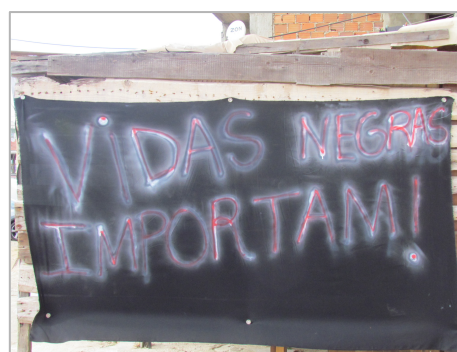 VIDAS NEGRAS
IMPORTAM!